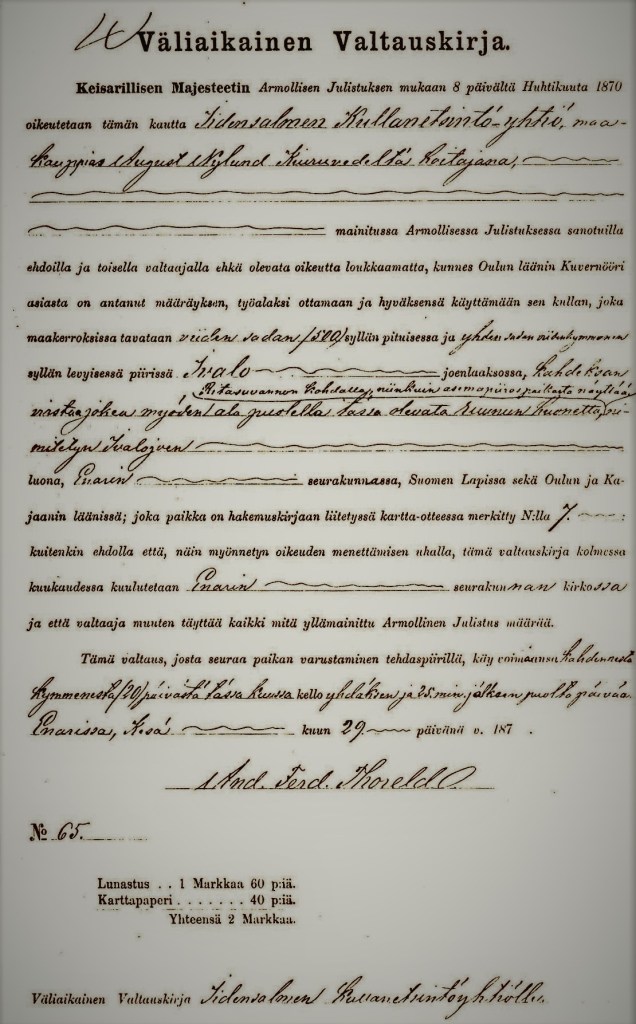 Väliaikainen Valtauskirja.
Keisarillisen Majesteetin Armollisen Julistuksen mukaan 8 päivältä Huhtikuuta 1870
oikeutetaan tämän kautta Iidensalmen Kullanetsintö-yhtiö, maa-
kauppias August Nylund Kiuruvedeltä hoitajana,
mainitussa Armollisessa Julistuksessa sanotuilla
ehdoilla ja toisella valtaajalla ehkä olevata oikeutta loukkaamatta, kunnes Oulun läänin Kuvernööri
asiasta on antanut määräyksen, työalaksi ottamaan ja hyväksensä käyttämään sen kullan, joka
maakerroksissa tavataan viiden sadan /500/ syllän pituisessa ja yhden sadan viidenkymmenen
syllän levyisessä piirissä Ivalo joenlaaksossa, kahdeksan
Ritasuvannon kohdalla, niinkuin asemapiirros paikasta näyttää,
virstaa jokea myöden ala puolella tässä olevata Ruunun huonetta, ni-
mitetyn Ivalojoen
luona, Enarin seurakunnassa, Suomen Lapissa sekä Oulun ja Ka-
jaanin läänissä; joka paikka on hakemuskirjaan liitetyssä kartta-otteessa merkitty N:lla 7. :
kuitenkin ehdolla että, näin myönnetyn oikeuden menettämisen uhalla, tämä valtauskirja kolmessa
kuukaudessa kuulutetaan Enarin seurakunnan kirkossa
ja että valtaaja muuten täyttää kaikki mitä yllämainittu Armollinen Julistus määrää.
Tämä valtaus, josta seuraa paikan varustaminen tehdaspiirillä, käy voimaansa kahdennesta
kymmenestä /20/ päivästä tässä kuussa kello yhdeksän ja 25 min. jälkeen puolta päivää
Enarissa, Kesä kuun 29 päivänä v. 187 .
And. Ferd. Thoreld
No 65.
Lunastus . . 1 Markkaa 60 p:iä.
Karttapaperi . . . . . . . 40 p:iä.
Yhteensä 2 Markkaa.
Väliaikainen Valtauskirja Iidensalmen Kullanetsintöyhtiölle